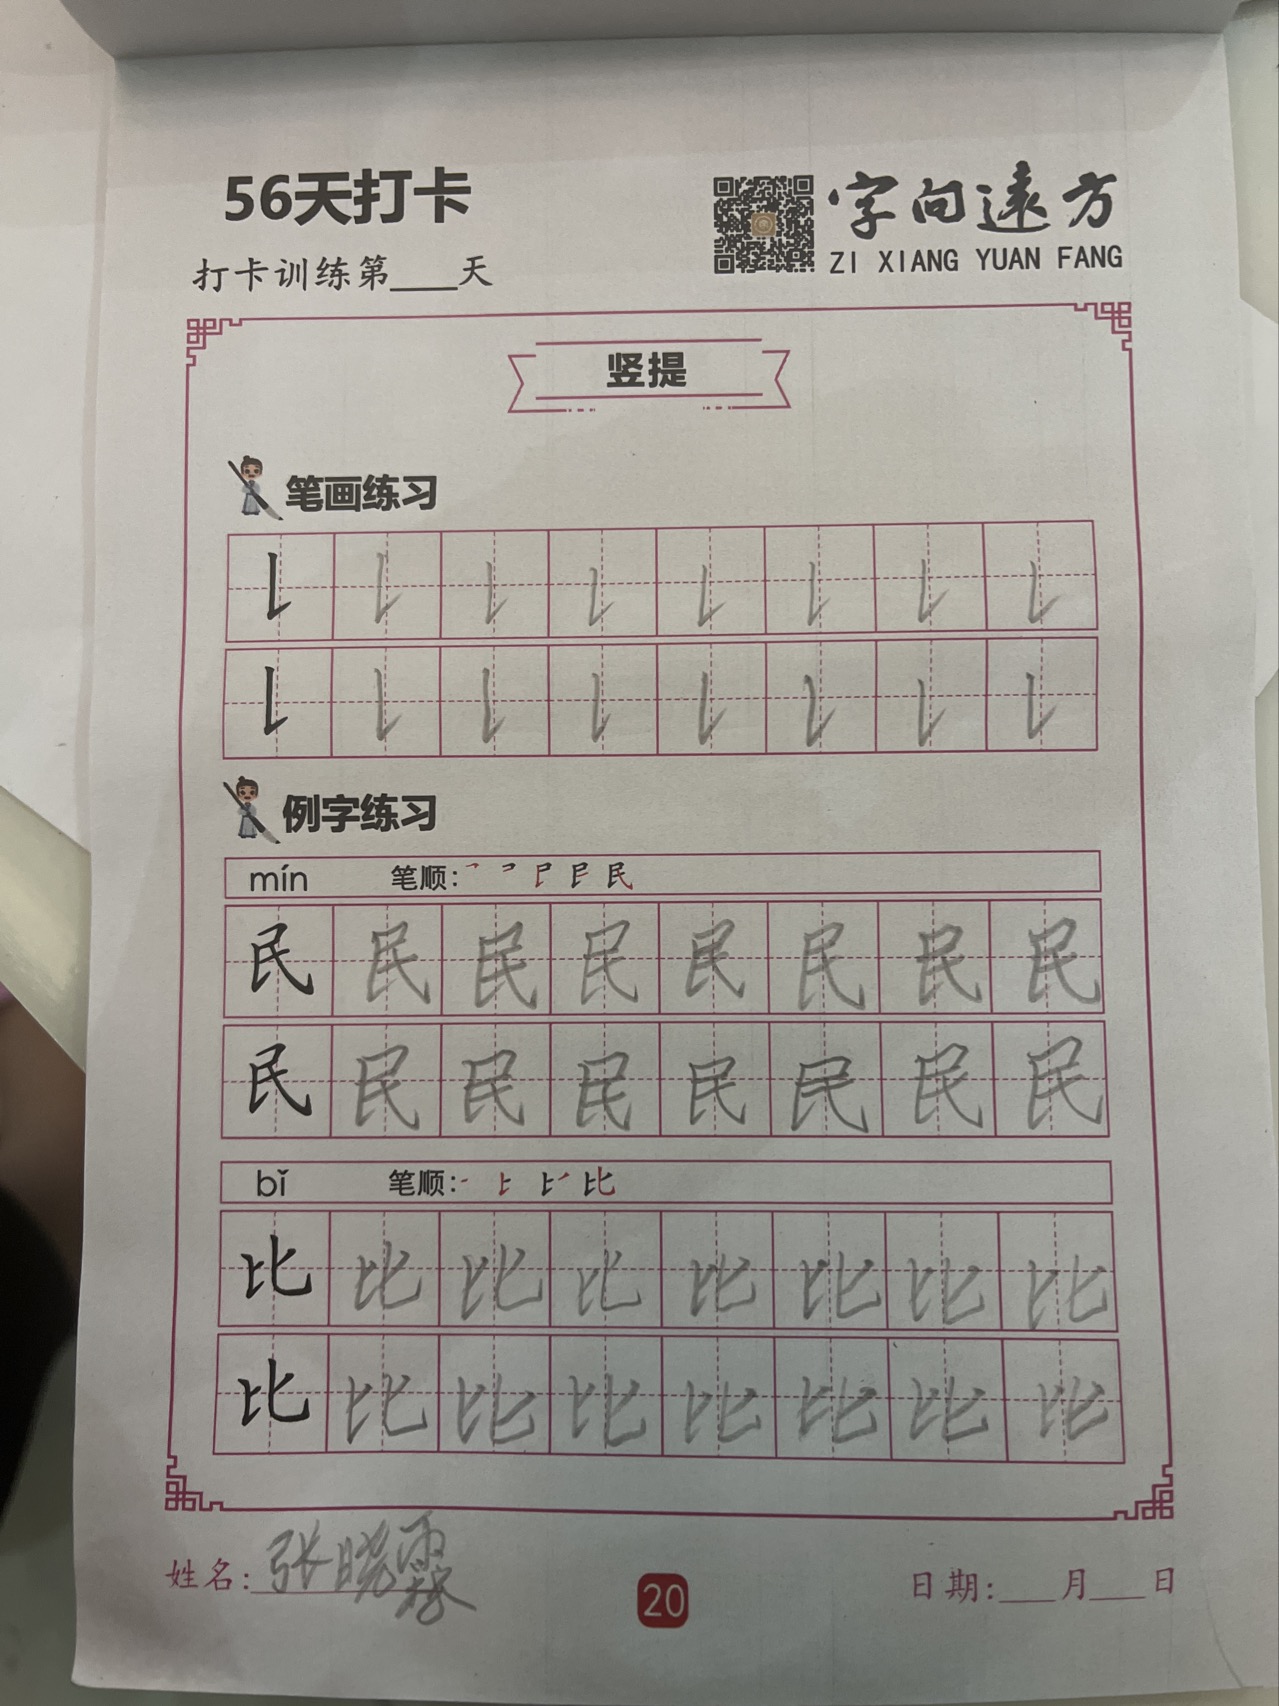 56天打卡
字向遠方
ZI XIANG YUAN FANG
打卡训练第____天
竖提
笔画练习
例字练习
mín 笔顺:
民 民 民 民 民 民 民 民
民 民 民 民 民 民 民 民
bǐ 笔顺:
比 比 比 比 比 比 比 比
比 比 比 比 比 比 比 比
姓名: 张晓
20
日期:___月___日